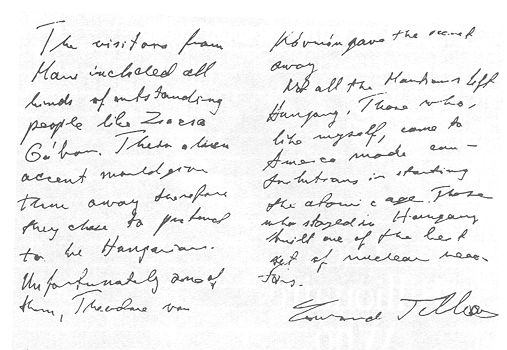 The visitors from
Mars included all
kinds of outstanding
people like Zsazsa
Gábor. Their alien
accent would give
them away therefore
they chose to pretend
to be Hungarian.
Unfortunately one of
them, Theodore von
Kármán gave the secret
away.
Not all the Martians left
Hungary. Those who,
like myself, came to
America made con-
tributions in starting
the atomic age. Those
who stayed in Hungary
built one of the best
set of nuclear reac-
tors.
Edward Teller